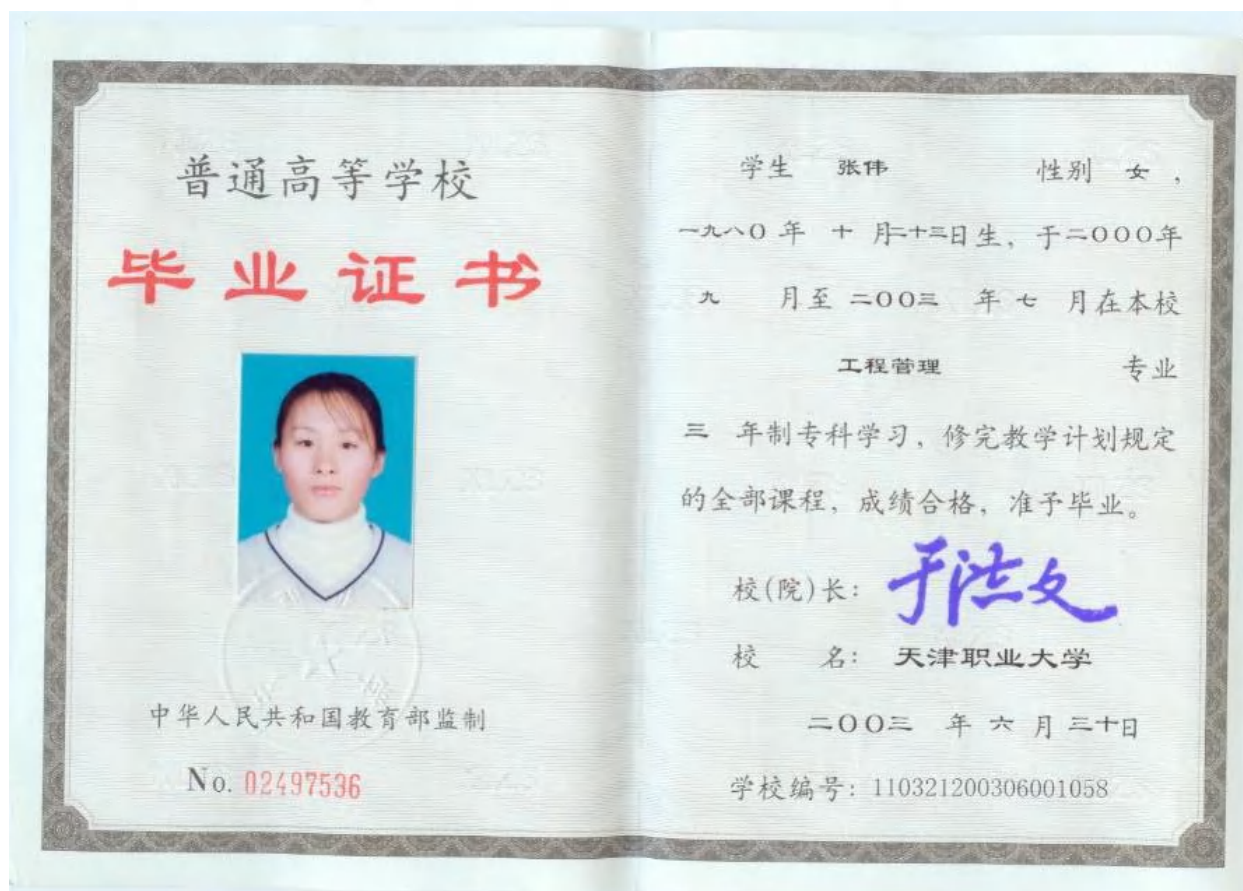 普通高等学校
毕业证书
中华人民共和国教育部监制
No. 02497536
学生 张伟 性别 女,
一九八〇年 十 月二十三日生, 于二000年
九 月至 二00三 年 七 月在本校
工程管理 专业
三 年制专科学习, 修完教学计划规定
的全部课程, 成绩合格, 准予毕业。
校(院)长: 于洪文
校 名: 天津职业大学
二00三 年 六 月 三十日
学校编号: 110321200306001058